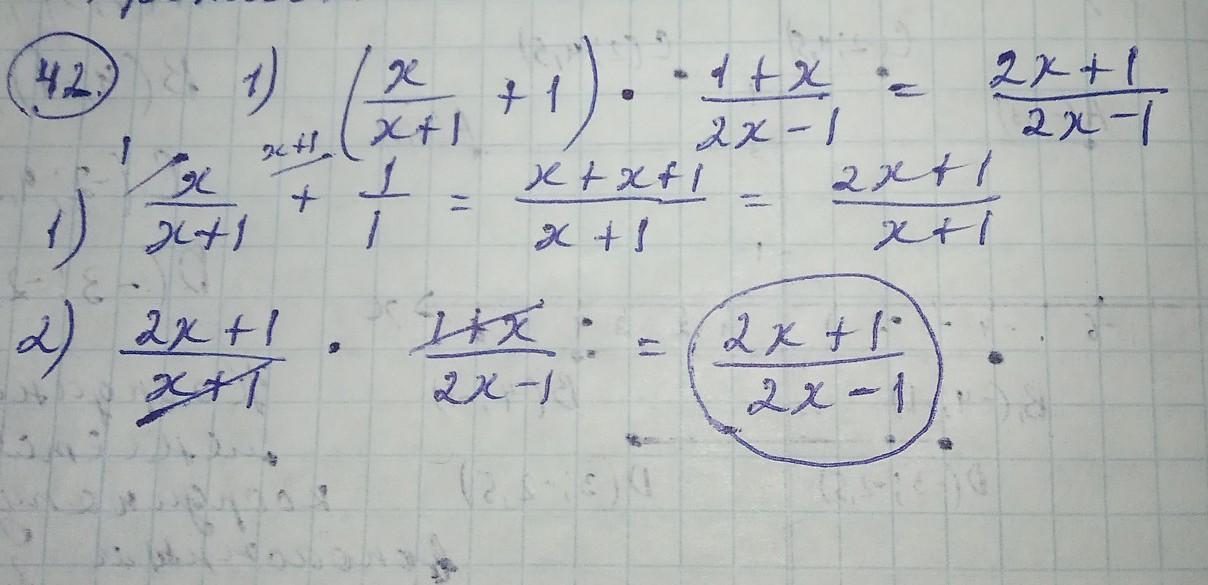 42. 1) (x/(x+1) + 1) · (1+x)/(2x-1) = (2x+1)/(2x-1)
1) x/(x+1) ^1 + 1/1 ^x+1 = (x+x+1)/(x+1) = (2x+1)/(x+1)
2) (2x+1)/(x+1) · (1+x)/(2x-1) = (2x+1)/(2x-1)